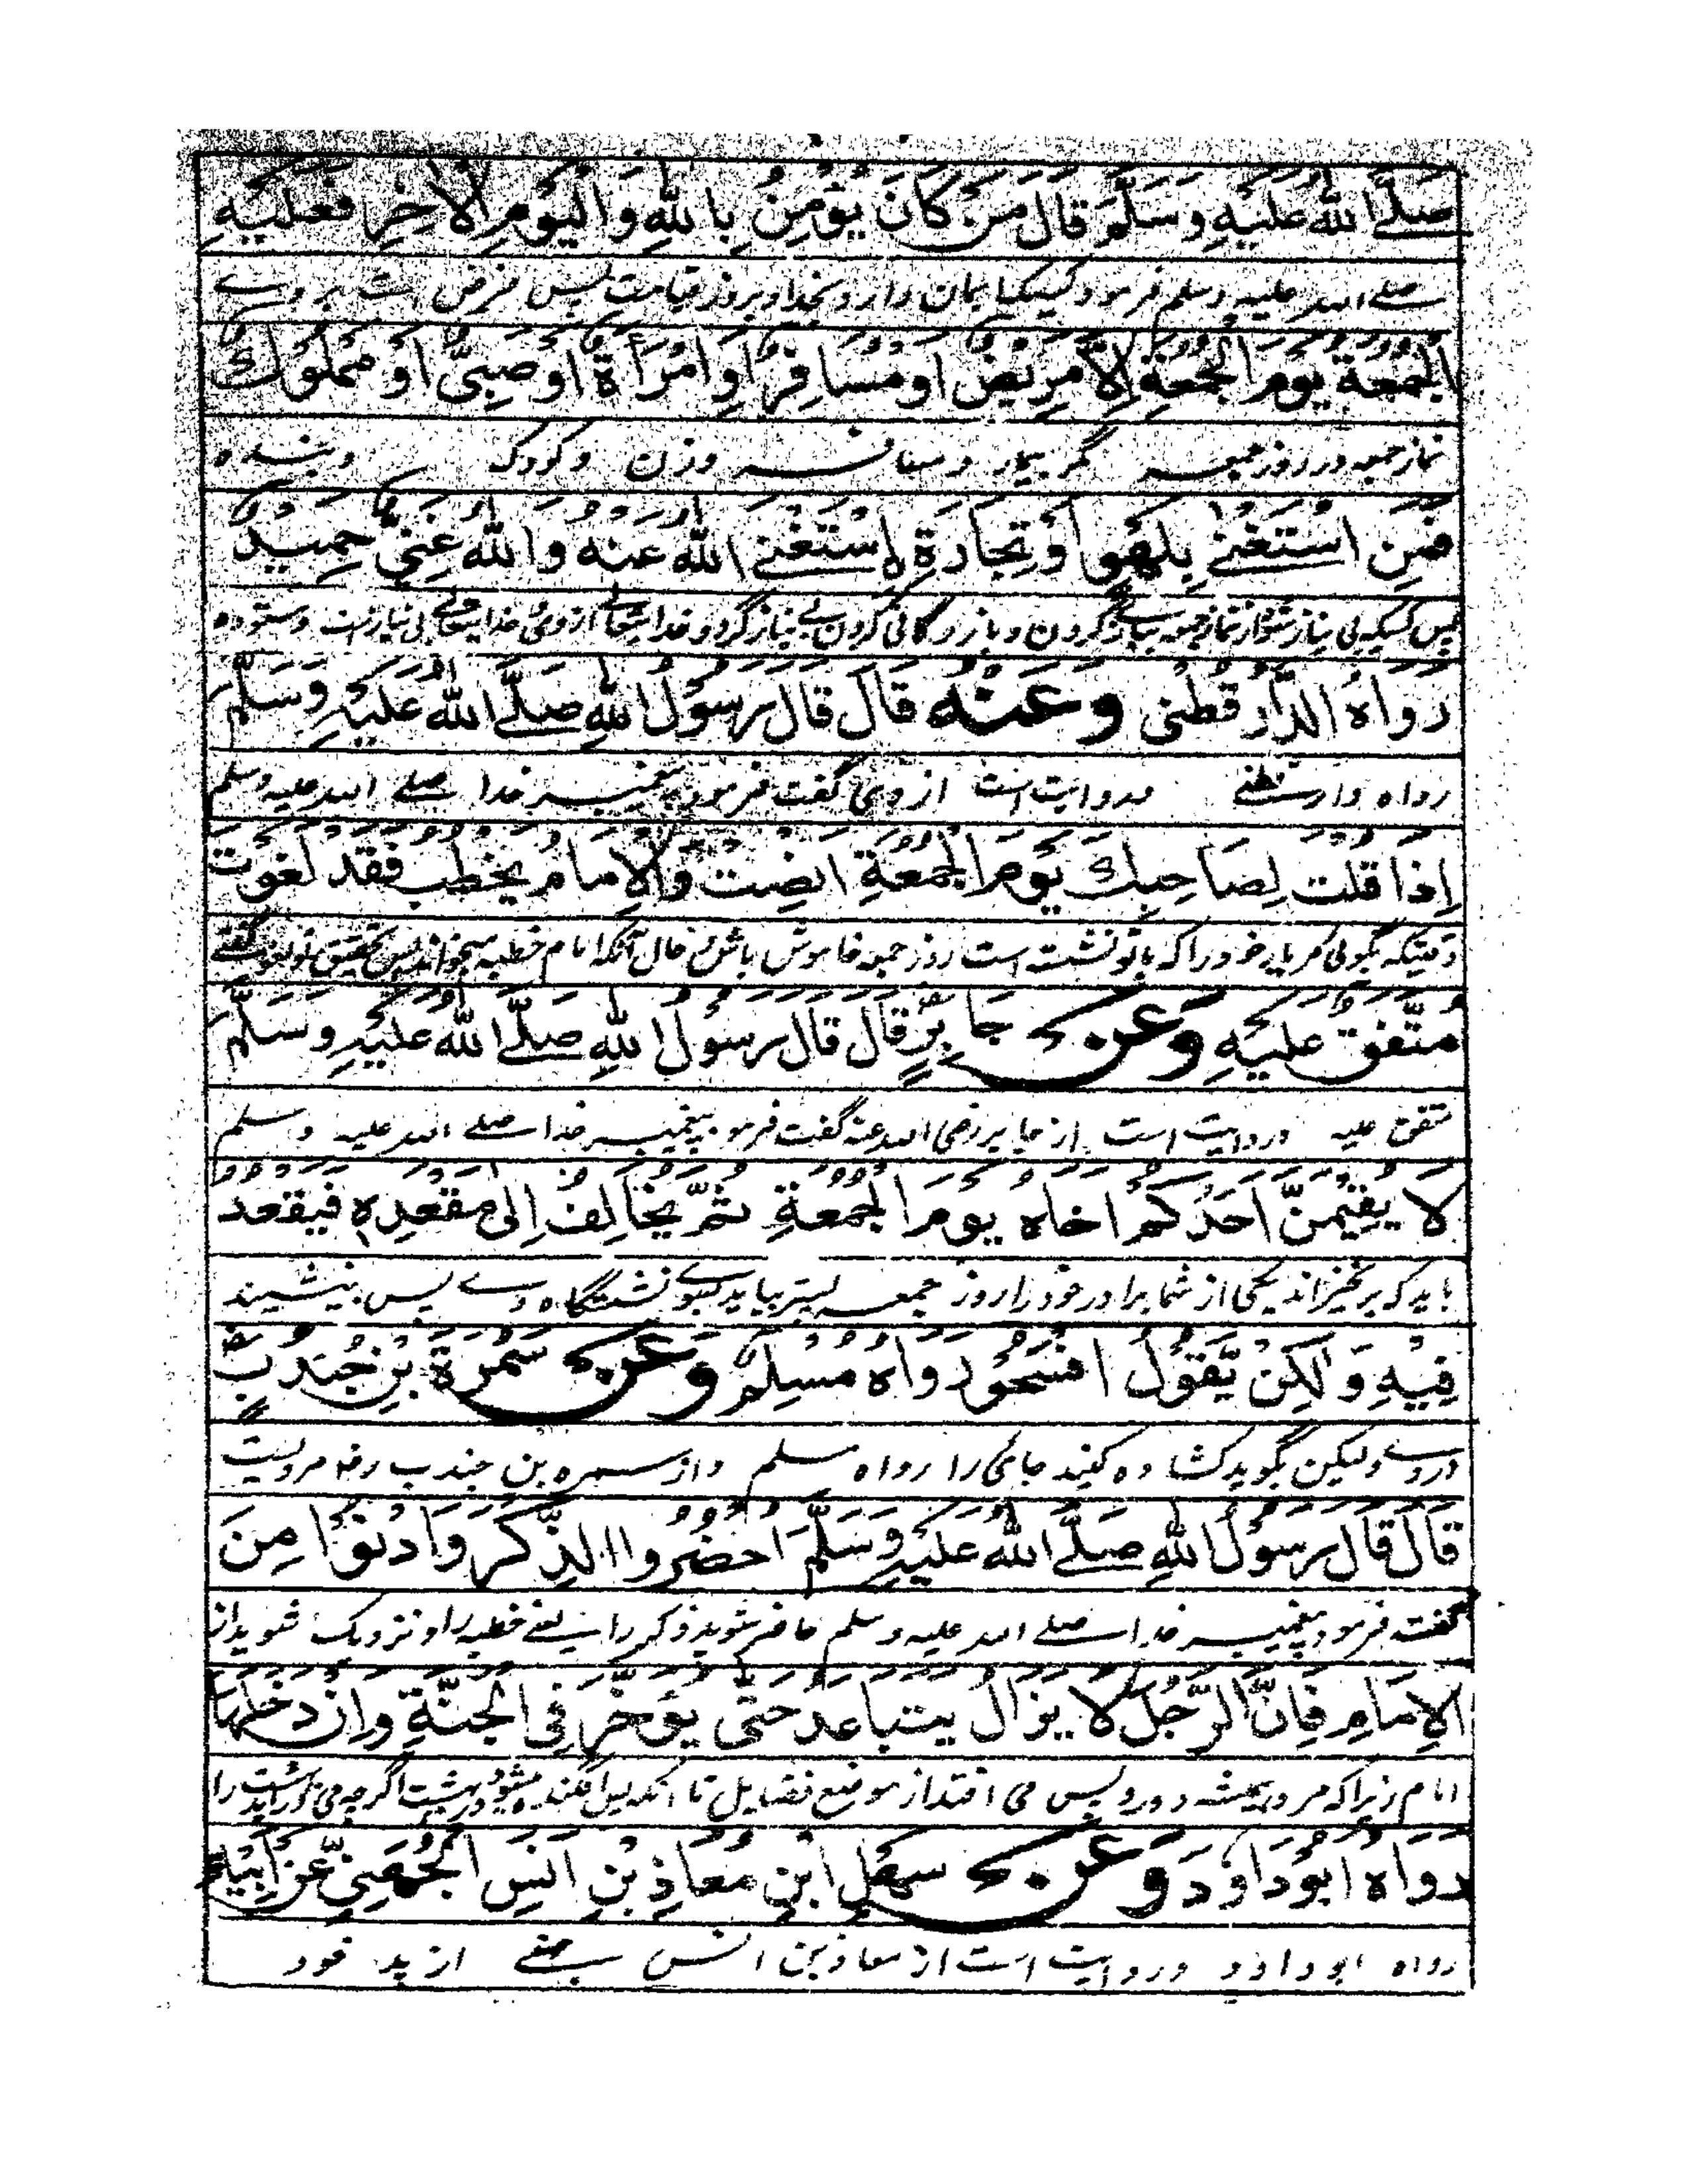 صَلَّى اللهُ عَلَيْهِ وَسَلَّمَ قَالَ مَنْ كَانَ يُؤْمِنُ بِاللهِ وَالْيَوْمِ الْاٰخِرِ فَعَلَيْهِ
صلے اللہ علیہ وسلم فرمود کسیکہ ایمان دارد بخدا و بروز قیامت پس فرض است بر وے
الْجُمُعَةُ يَوْمَ الْجُمُعَةِ اِلَّا مَرِيْضٌ اَوْ مُسَافِرٌ اَوِ امْرَأَةٌ اَوْ صَبِيٌّ اَوْ مَمْلُوْكٌ
نماز جمعہ در روز جمعہ مگر بیمار و مسافر وزن و کودک و بندہ
فَمَنِ اسْتَغْنٰى بِلَهْوٍ اَوْ تِجَارَةٍ اِسْتَغْنَى اللهُ عَنْهُ وَاللهُ غَنِيٌّ حَمِيْدٌ
پس کسیکہ بی نیاز شود از نماز جمعہ کردن و بازرگانی کردن بے نیاز گردد خدایتعالے از وی و خدایتعالے بی نیاز است و ستودہ
رَوَاهُ الدَّارَقُطْنِى وَعَنْهُ قَالَ قَالَ رَسُوْلُ اللهِ صَلَّى اللهُ عَلَيْهِ وَسَلَّمَ
رواہ دارقطنے و روایت است از وی گفت فرمود پیغمبر خدا صلے اللہ علیہ وسلم
اِذَا قُلْتَ لِصَاحِبِكَ يَوْمَ الْجُمُعَةِ اَنْصِتْ وَالْاِمَامُ يَخْطُبُ فَقَدْ لَغَوْتَ
وقتیکہ بگوئی مر یار خود را کہ با تو نشستہ است روز جمعہ خاموش باش و حال آنکہ امام خطبہ میخواند پس تحقیق تو لغو گفتے
مُتَّفَقٌ عَلَيْهِ وَعَنْ جَابِرٍ قَالَ قَالَ رَسُوْلُ اللهِ صَلَّى اللهُ عَلَيْهِ وَسَلَّمَ
متفق علیہ و روایت است از جابر رضی اللہ عنہ گفت فرمود پیغمبر خدا صلے اللہ علیہ وسلم
لَا يُقِيْمَنَّ اَحَدُكُمْ اَخَاهُ يَوْمَ الْجُمُعَةِ ثُمَّ يُخَالِفُ اِلٰى مَقْعَدِهٖ فَيَقْعُدُ
باید کہ برنخیزاند یکی از شما برادر خود را روز جمعہ پستر بیاید بسوے نشستگاہ وے پس بنشیند
فِيْهِ وَلٰكِنْ يَّقُوْلُ افْسَحُوْا رَوَاهُ مُسْلِمٌ وَعَنْ سَمُرَةَ بْنِ جُنْدُبٍ
در وے و لیکن بگوید کشادہ کنید جائی را رواہ مسلم و از سمرہ بن جندب رضہ مرویست
قَالَ قَالَ رَسُوْلُ اللهِ صَلَّى اللهُ عَلَيْهِ وَسَلَّمَ اُحْضُرُوا الذِّكْرَ وَادْنُوْا مِنَ
گفت فرمود پیغمبر خدا صلے اللہ علیہ وسلم حاضر شوید ذکر را یعنے خطبہ را و نزدیک شوید از
الْاِمَامِ فَاِنَّ الرَّجُلَ لَا يَزَالُ يَتَبَاعَدُ حَتّٰى يُؤَخَّرَ فِى الْجَنَّةِ وَاِنْ دَخَلَهَا
امام زیرا کہ مرد ہمیشہ دور و پس می افتد از موضع فضایل تا آنکہ پس افگندہ میشود در بہشت اگرچہ می در آید بہشت را
رَوَاهُ اَبُوْدَاوٗدَ وَعَنْ سَهْلِ ابْنِ مُعَاذِ بْنِ اَنَسِ الْجُهَنِيِّ عَنْ اَبِيْهِ
رواہ ابو داؤد و روایت است از معاذ بن انس جہنے از پدر خود